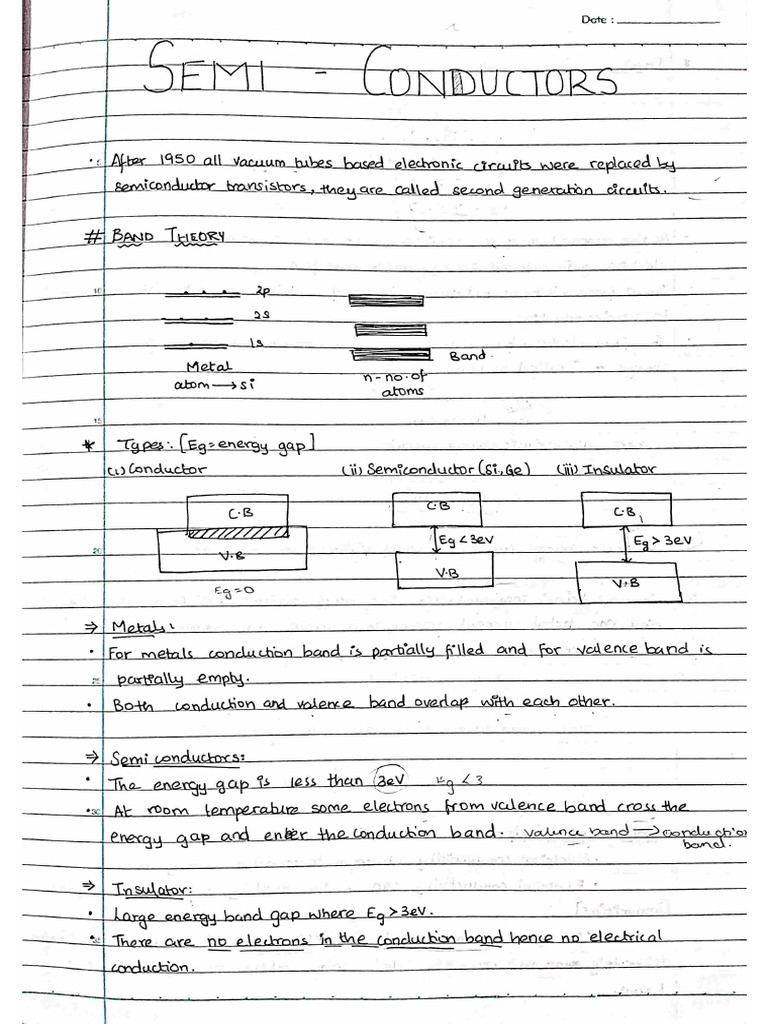 Date :
SEMI - CONDUCTORS
• After 1950 all vacuum tubes based electronic circuits were replaced by
semiconductor transistors, they are called second generation circuits.
# BAND THEORY
10
2p
2s
1s
Band.
Metal
atom → si
n - no. of
atoms
15
* Types:. [Eg = energy gap]
(i) Conductor (ii) Semiconductor (Si, Ge) (iii) Insulator
C.B C.B C.B
Eg < 3eV Eg > 3eV
20
V.B V.B V.B
Eg = 0
⇒ Metals:
• For metals conduction band is partially filled and for valence band is
partially empty.
• Both conduction and valence band overlap with each other.
⇒ Semi conductors:
• The energy gap is less than 3eV Eg < 3
• At room temperature some electrons from valence band cross the
30
energy gap and enter the conduction band. valence band → conduction
band.
⇒ Insulator:
• Large energy band gap where Eg > 3eV.
• There are no electrons in the conduction band hence no electrical
conduction.